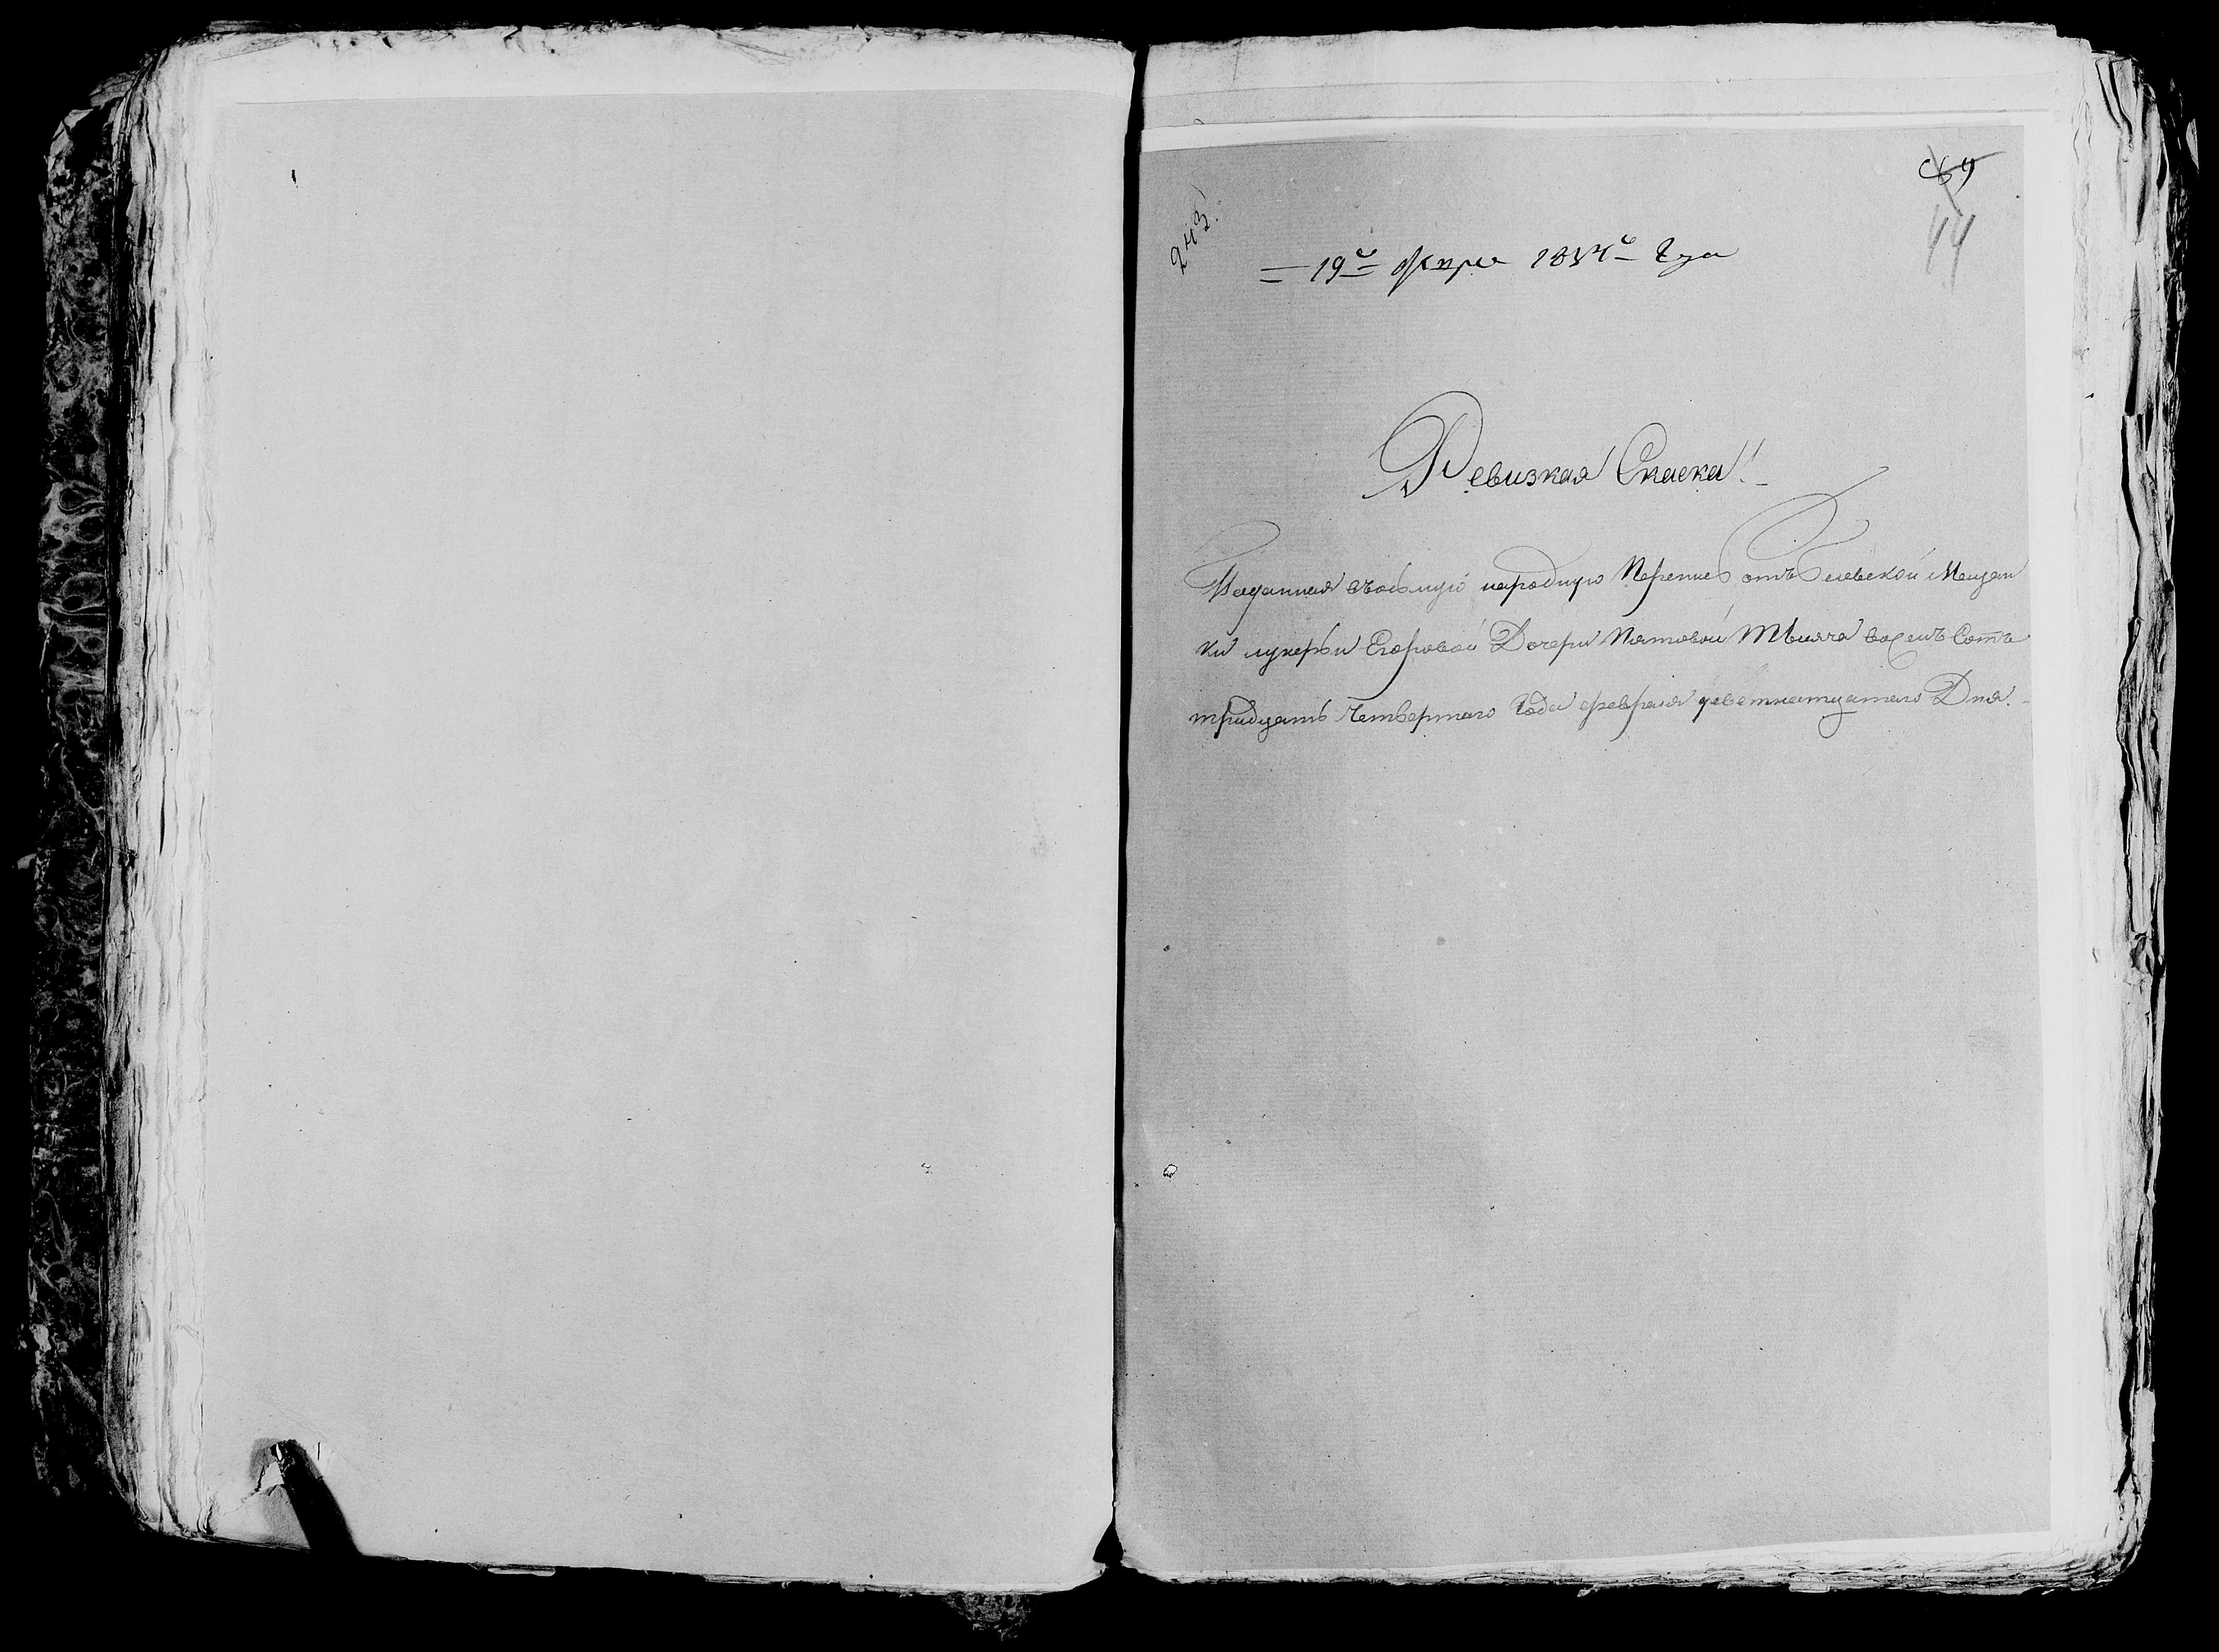 69
44
243
19го февр 1834го Года
Ревизкая Скаска!
Поданная восьмую народную Перепись отъ Белевской Мещан
ки лукерьи Егоровой Дочери Пятовой Тысяча восемъ Сотъ
тридцать Четвертаго Года февраля деветнатцатаго Дня.